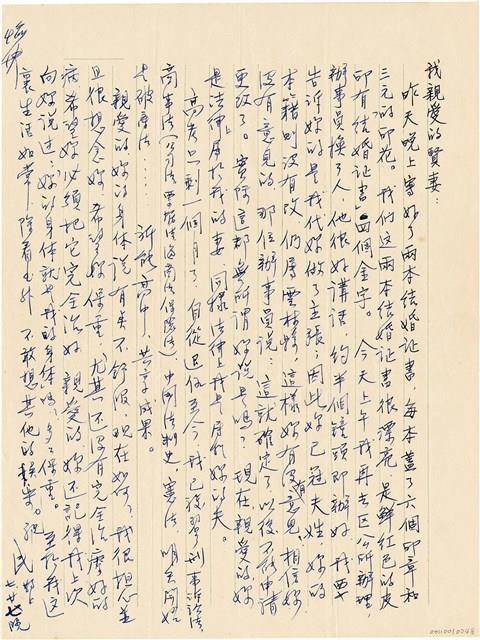 我親愛的賢妻：
昨天晚上寫好了兩本結婚証書，每本蓋了六個印章和
三元的印花。我們这兩本結婚証書很漂亮，是鮮紅色的皮
印有結婚証書四個金字。今天上午我再去区公所辦理，
辦事員換了人，他很好講話，約半個鐘頭即辦好，我要
告訴妳的是我代妳做了主張；因此妳已冠夫姓，妳的
本籍則沒有改，仍屬雲林縣，這樣妳有沒有意見，相信妳
沒有意見的，那位辦事員說：這就確定了，以後不能申請
更改了。實際這都無所謂妳說是嗎？現在親愛的妳
是法律上屬於我的妻，同樣法律上我是屬於妳的夫。
高考只剩一個月了，自從退伍至今，我已複習刑事訴訟法，
商事法（公司法 票據法 海商法 保險法）中国法制史，憲法，明天開始
是破產法……訴能高中，共享成果。
親愛的妳的身体說有点不舒服，現在如何，我很想念並
且很想念妳，希望妳保重，尤其还沒有完全治療好的
病，希望妳必須把它完全治好，親愛的妳还記得我上次
向妳說过：妳的身体就是我的身体嗎，多多保重。至於我这
裏生活如常，除看書外，不敢想其他的
民 好上
七廿七晚